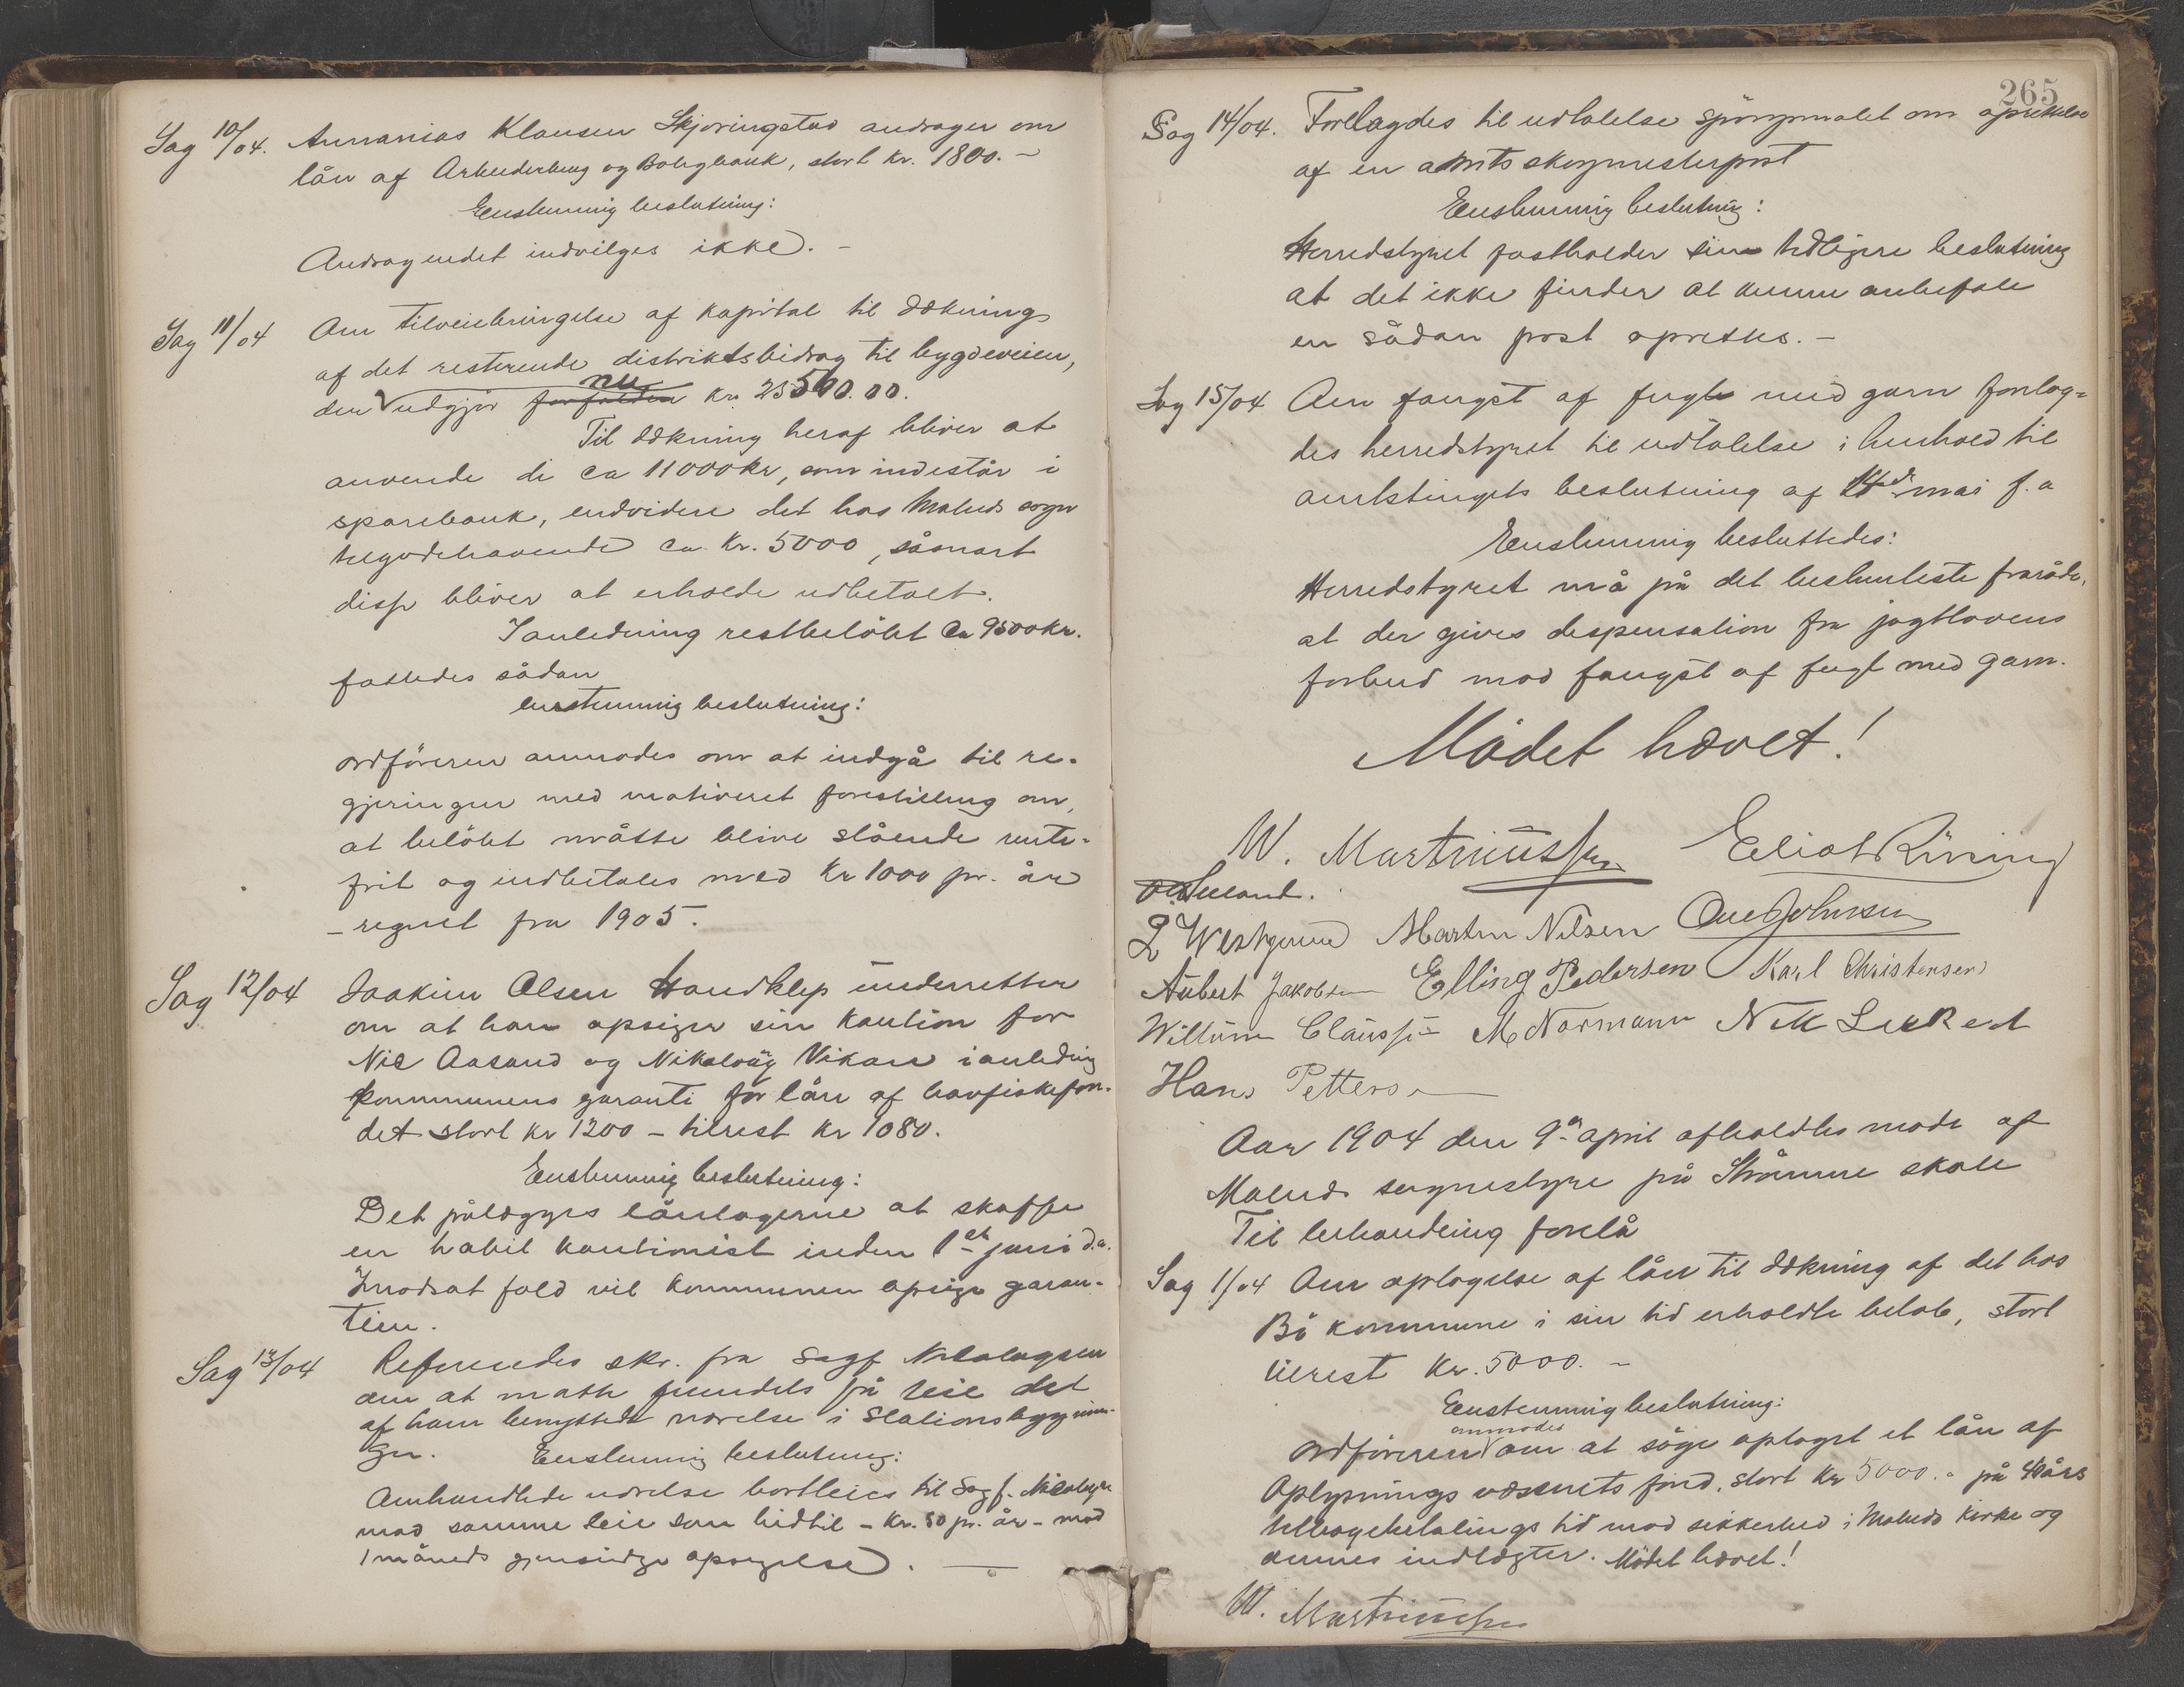 Sag 10/04. Annanias Klausen Skjoringstad andrager om
lån af Arbeiderbrug og Boligbank, stort kr. 1800.-
Eenstemmig beslutning:
Andragendet indvilges ikke. -
Sag 11/04 Om tilveiebringelse af kapital til dækning
af det resterende distriktsbidrag til bygdeveien,
der nu udgjør kr 25500.00.
Til dækning heraf bliver at
anvende de ca 11000 kr, som indestår i
sparebank, endvidere det hos Malnes sogn
tilgodehavende ca. kr. 5000, såsnart
disse bliver at erholde udbetalt.
I anledning restbeløbet Ca 9500 kr.
fattedes sådan
enstemmig beslutning:
ordføreren anmodes om at indgå til re-
gjeringen med motiveret forestilling om,
at beløbet måtte blive stående rente-
frit og indbetales med kr 1000 pr. år
- regnet fra 1905.
Sag 12/04 Joakim Olsen Haudklep underretter
om at han opsiger sin kaution for
Nic Aasand og Nikolai Vikan i anledning
kommunens garanti for lån af havfiskefon-
det stort kr 1200 - tilrest kr 1080.
Eenstemmig beslutning:
Det pålægges låntagerne at skaffe
en habil kautionist inden 1st juni d.a.
I modsat fald vil kommunen opsige garan-
tien.
Sag 13/04 Refereredes skr. fra Sagf Nicolaysen
om at måtte fremdeles få leie det
af ham benyttede værelse i Stationsbygnin-
gen. Eenstemmig beslutning:
Omhandlede værelse bortleies til Sagf. Nicolaysen
mod samme leie som hidtil - kr. 50 pr. år - mod
1 måneds gjensidige opsigelse. -
265
Sag 14/04. Forelagdes til udtalelse spørgsmålet om oprettelse
af en amtsskogmesterpost
Eenstemmig beslutning:
Herredstyret fastholder sin tidligere beslutning
at det ikke finder at kunne anbefale
en sådan post oprettes. -
Sag 15/04 Om fangst af fugle med garn forelag-
des herredstyret til udtalelse i henhold til
amtstingets beslutning af 14de mai f.a
Eenstemmig besluttedes:
Herredstyret må på det bestemteste fraråde,
at der gives dispensation fra jagtlovens
forbud mod fangst af fugl med garn.
Mødet hævet!
W. Martinussen Eliot Röring
Martin Nilsen Ole Johnsen
Aubert Jakobsen Elling Pedersen Karl Christensen
Willum Claussen M Normann
Hans Petters
Aar 1904 den 9de april afholdtes møde af
Malnes sognestyre på Strømme skole
Til behandling forelå
Sag 1/04 Om optagelse af lån til dækning af det hos
Bö kommune i sin tid erholdte beløb, stort
tilrest kr. 5000. -
Eenstemmig beslutning:
ordføreren anmodes om at søge optaget et lån af
Oplysningsvæsenets fond, stort kr 5000.- på 40 års
tilbagebetalings tid mod sikkerhed i Malnes kirke og
annes indtægter. Mødet hævet!
W. Martinussen